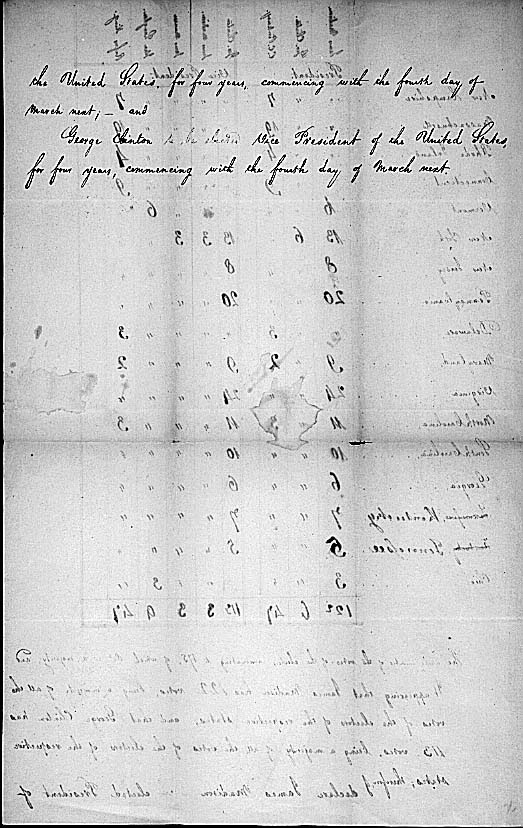 the United States, for four years, commencing with the fourth day of
March next; — and
George Clinton to be elected Vice President of the United States,
for four years, commencing with the fourth day of March next.
New Hampshire 7 7
Massachusetts
Rhode Island
Connecticut 9 9
Vermont 6 6
New York 13 6 13 3 3
New Jersey 8 8
Pennsylvania 20 20
Delaware 3 3
Maryland 9 2 9 2
Virginia 24 24
North Carolina 11 11 3
South Carolina 10 10
Georgia 6 6
Kentucky 7 7
Tennessee 5 5
Ohio 3 3
122 6 47 113 3 3 9 47
The whole number of the votes of the electors amounting to 175 of which 88 is a majority and
it appearing that James Madison has 122 votes being a majority of all the
votes of the electors of the respective states, and that George Clinton has
113 votes, being a majority of all the votes of the electors of the respective
states, therefore, I declare James Madison elected President of